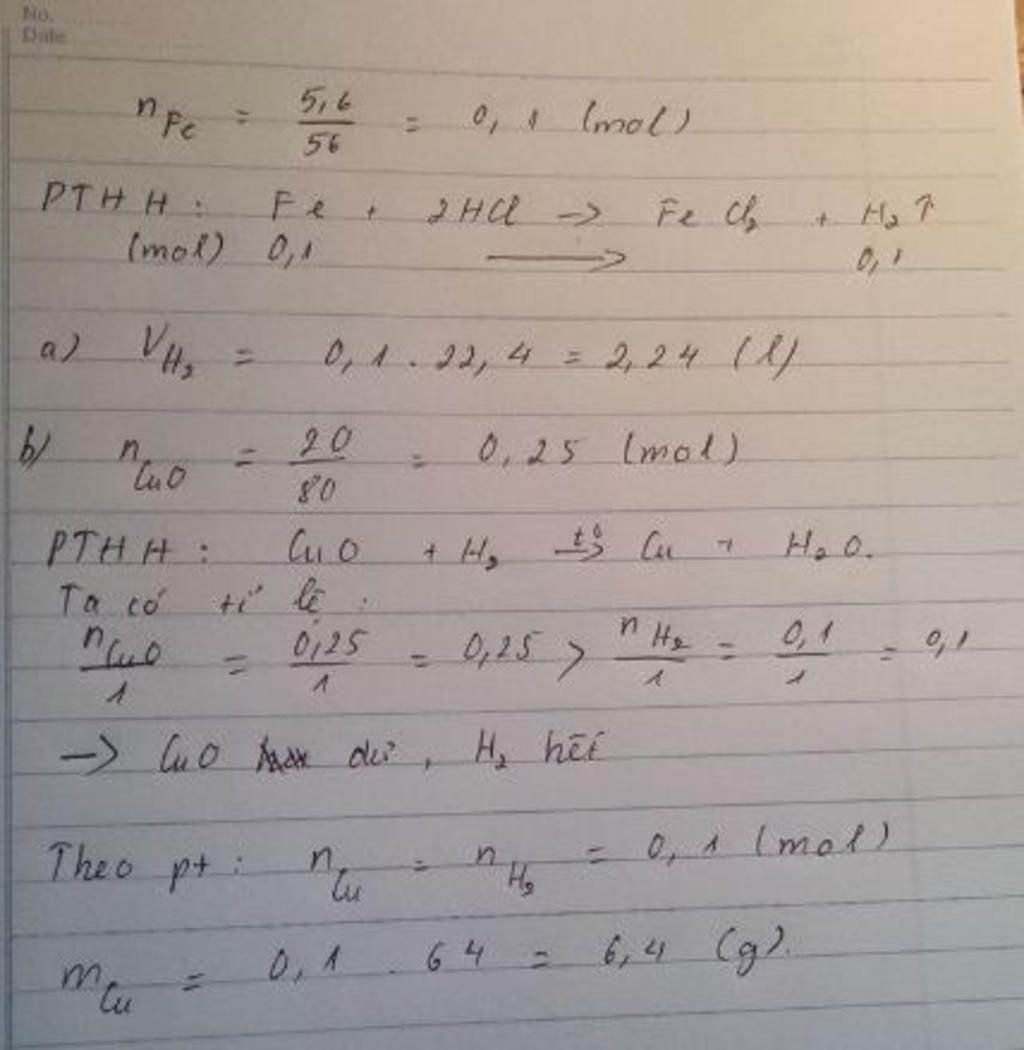 No.
Date
n Fe = 5,6/56 = 0,1 (mol)
PTHH: Fe + 2HCl → FeCl₂ + H₂↑
(mol) 0,1 ⟶ 0,1
a) V H₂ = 0,1 . 22,4 = 2,24 (l)
b) n CuO = 20/80 = 0,25 (mol)
PTHH: CuO + H₂ t°→ Cu + H₂O.
Ta có tỉ lệ:
n CuO/1 = 0,25/1 = 0,25 > n H₂/1 = 0,1/1 = 0,1
→ CuO dư, H₂ hết
Theo pt: n Cu = n H₂ = 0,1 (mol)
m Cu = 0,1 . 64 = 6,4 (g).